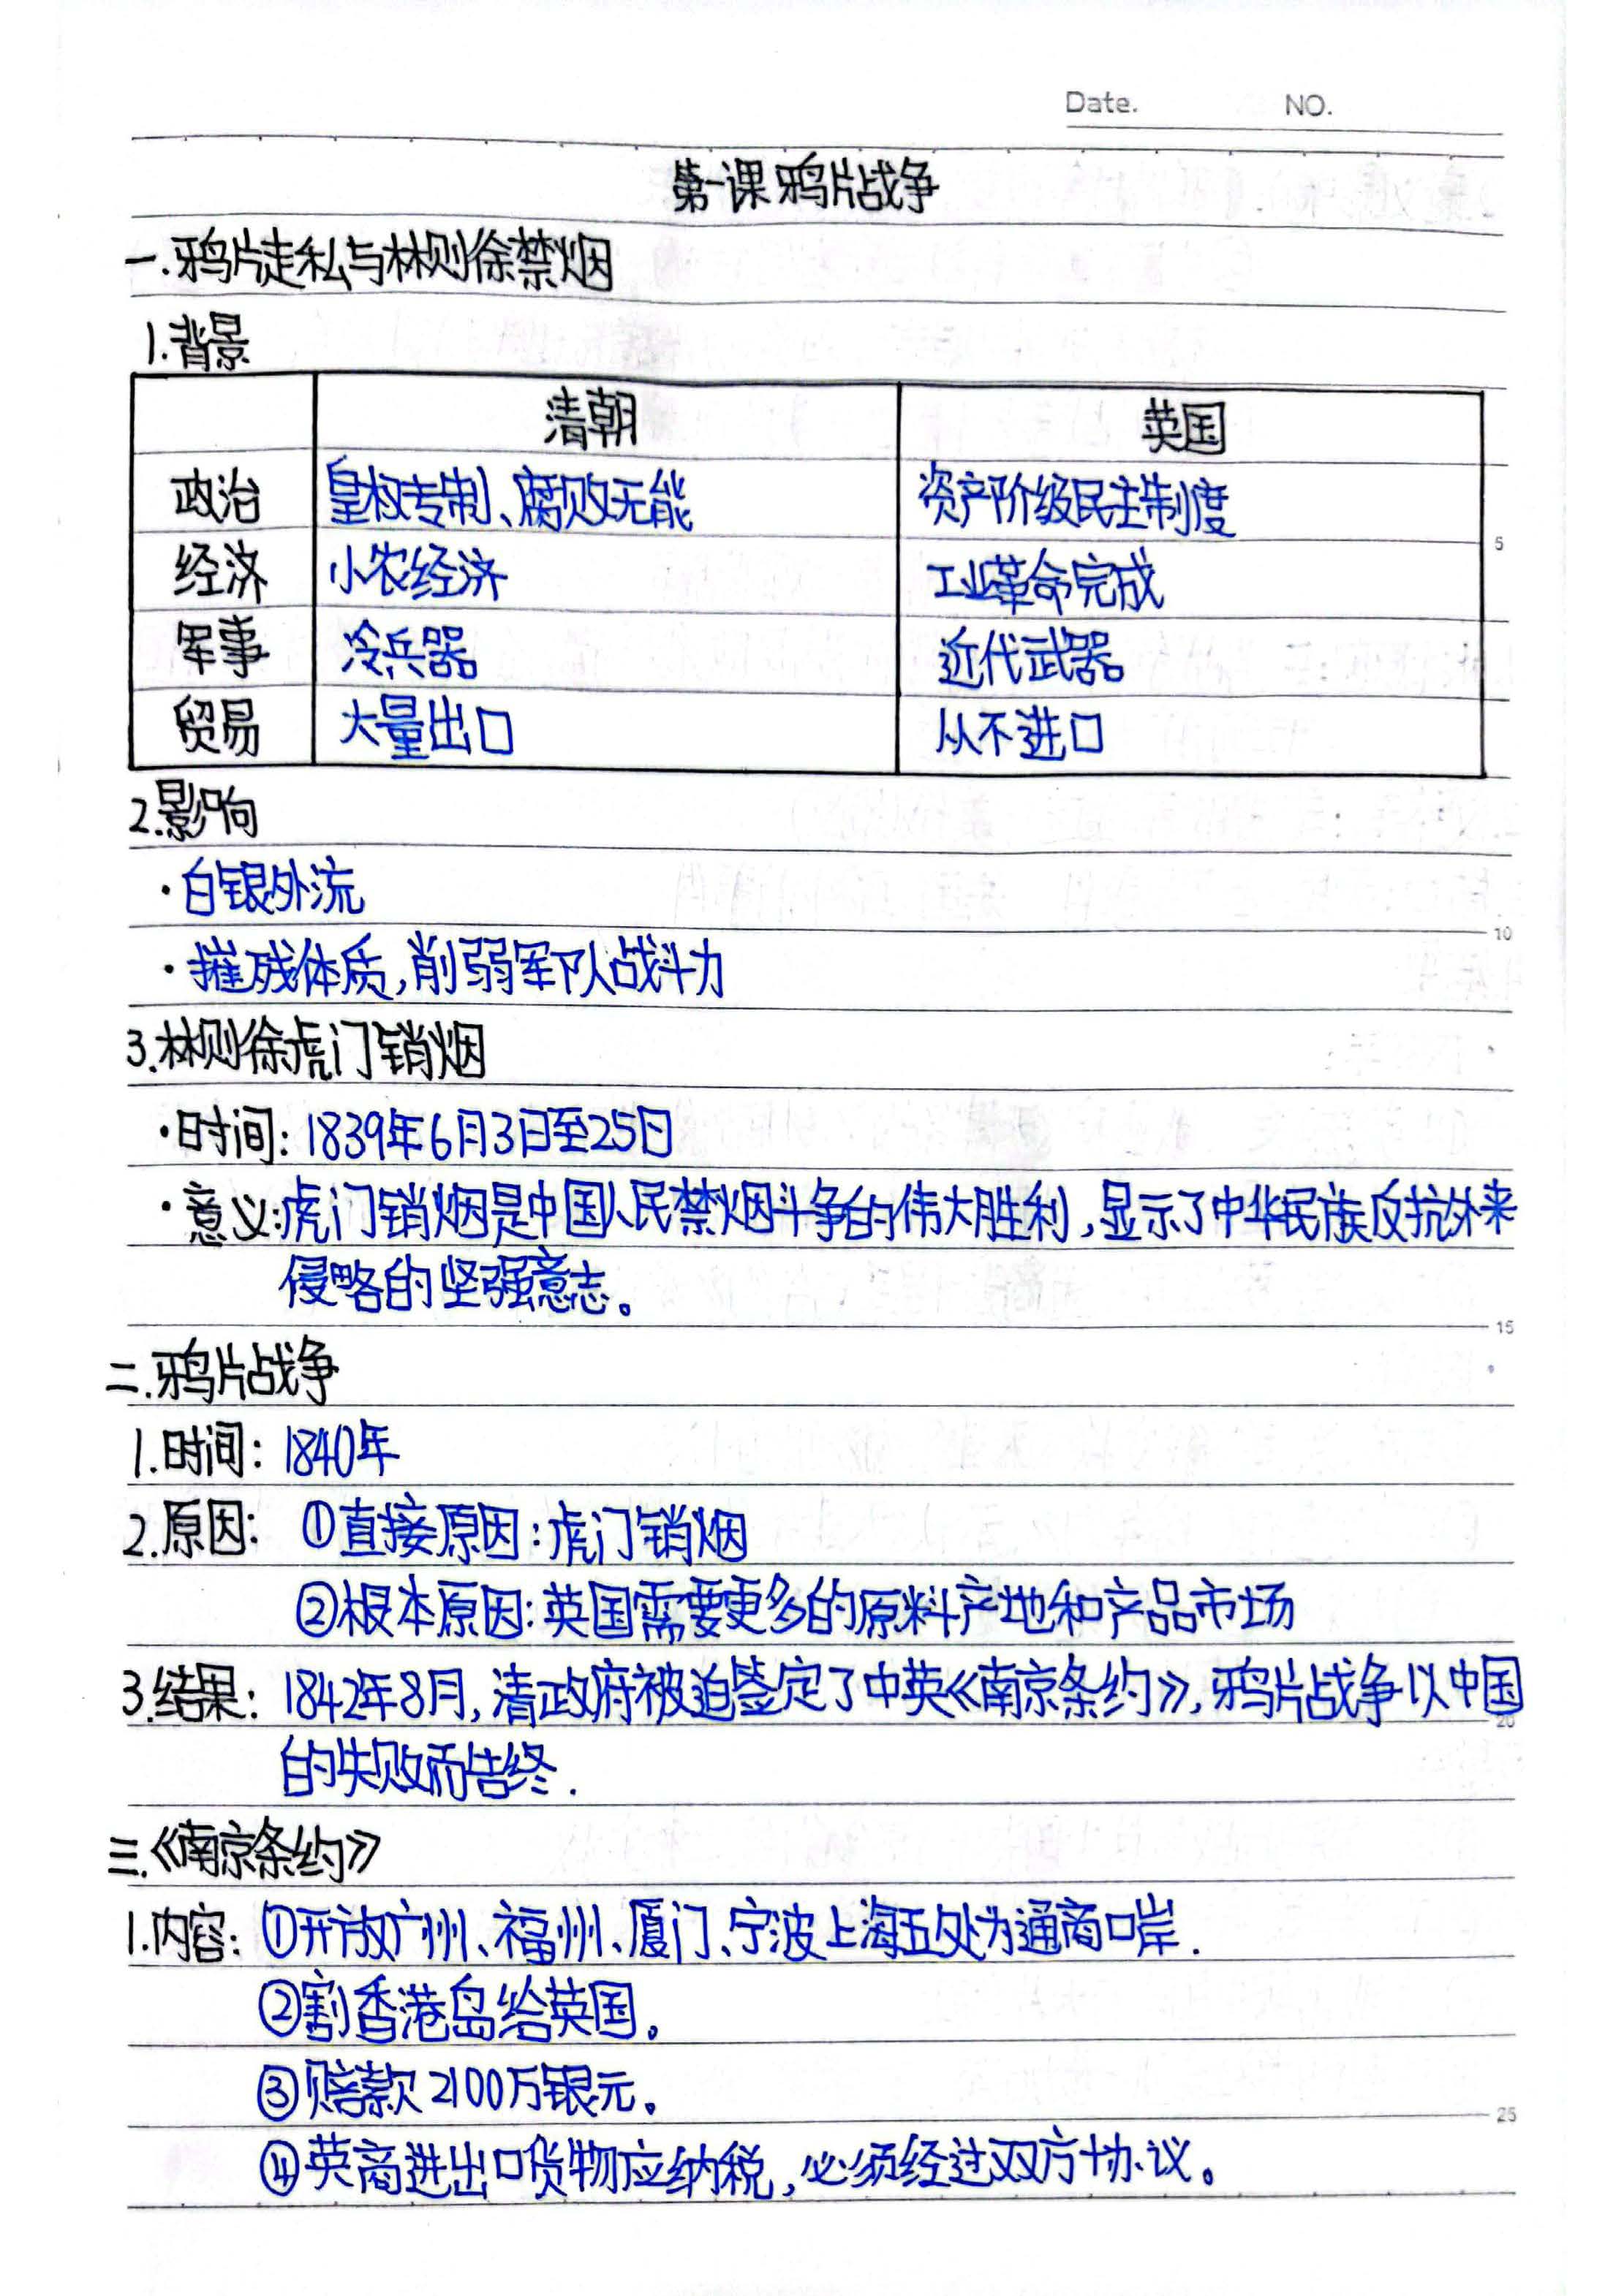 Date. NO.
第一课 鸦片战争
一.鸦片走私与林则徐禁烟
1.背景
清朝 英国
政治 皇权专制、腐败无能 资产阶级民主制度
经济 小农经济 工业革命完成
军事 冷兵器 近代武器
贸易 大量出口 从不进口
2.影响
·白银外流
·摧残体质,削弱军队战斗力
3.林则徐虎门销烟
·时间:1839年6月3日至25日
·意义:虎门销烟是中国人民禁烟斗争的伟大胜利,显示了中华民族反抗外来
侵略的坚强意志。
二.鸦片战争
1.时间:1840年
2.原因: ①直接原因:虎门销烟
②根本原因:英国需要更多的原料产地和产品市场
3.结果: 1842年8月,清政府被迫鉴定了中英《南京条约》,鸦片战争以中国
的失败而告终.
三.《南京条约》
1.内容: ①开放广州、福州、厦门、宁波上海五处为通商口岸.
②割香港岛给英国。
③赔款2100万银元。
④英商进出口货物应纳税,必须经过双方协议。
5
10
15
20
25